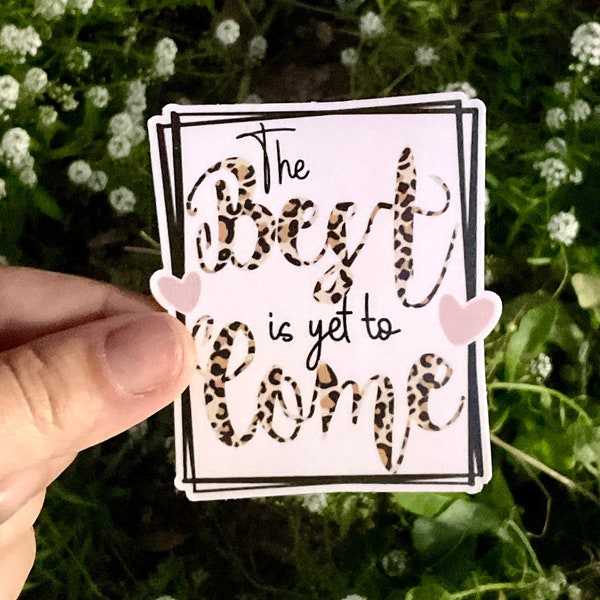 The
Best
is yet to
Come